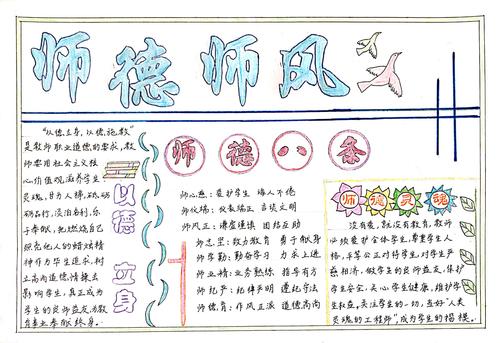 师德师风
"以德立身,以德施教"
是教师职业道德的要求,教
师要用社会主义核
心价值观滋养学生
灵魂,甘为人梯,
品行,淡泊名利,乐
于奉献,把燃烧自己
照亮他人的蜡烛精
神作为毕生追求,树
立高尚道德情操去
影响学生,真正成为
学生的良师益友,为教
育事业奉献终身.
以德立身
师德八条
师心慈:爱护学生 诲人不倦
师仪端:仪表端正 言谈文明
师风正:谦虚谨慎 团结互助
师之坚:致力教育 勇于献身
师学勤:勤奋学习 力求上进
师业精:业务熟练 指导有方
师纪严:纪律严明 遵纪守法
师德育:作风正派 道德高尚
师德灵魂
没有爱,就没有教育,教师
必须爱护全体学生,尊重学生人
格,平等公正对待学生,对学生严
慈相济,做学生的良师益友,保护
学生安全,关心学生健康,维护学
生权益,关注学生的一切,当好"人类
灵魂的工程师",成为学生的楷模.